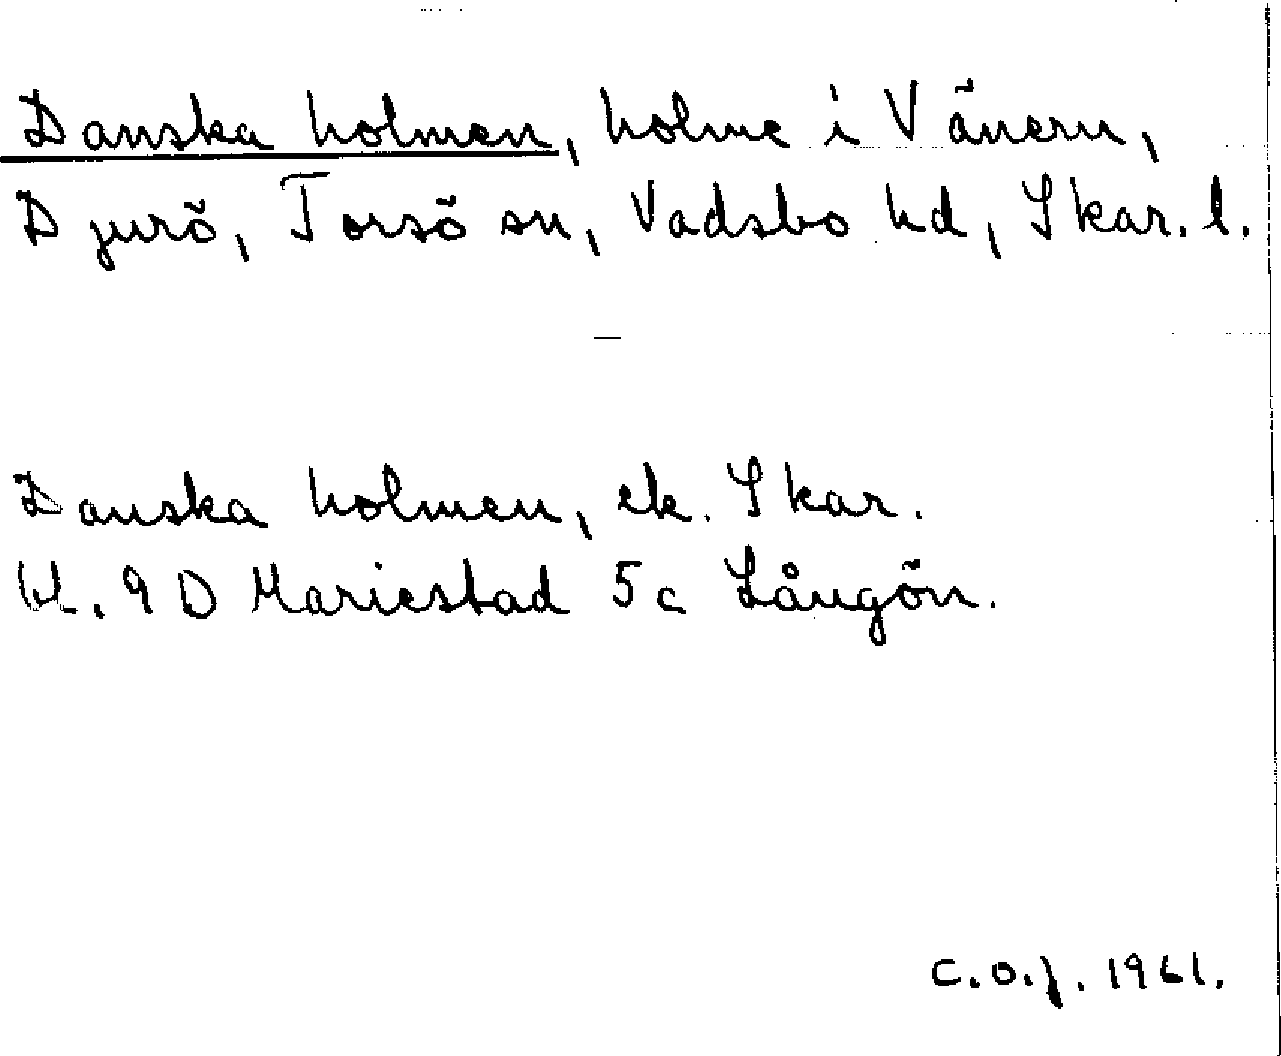 Danska holmen, holme i Vänern,
Djurö, Torsö sn, Vadsbo hd, Skar. l.
—
Danska holmen, ek. Skar.
bl. 9 D Mariestad 5c Långön.
C.O.J. 1961.